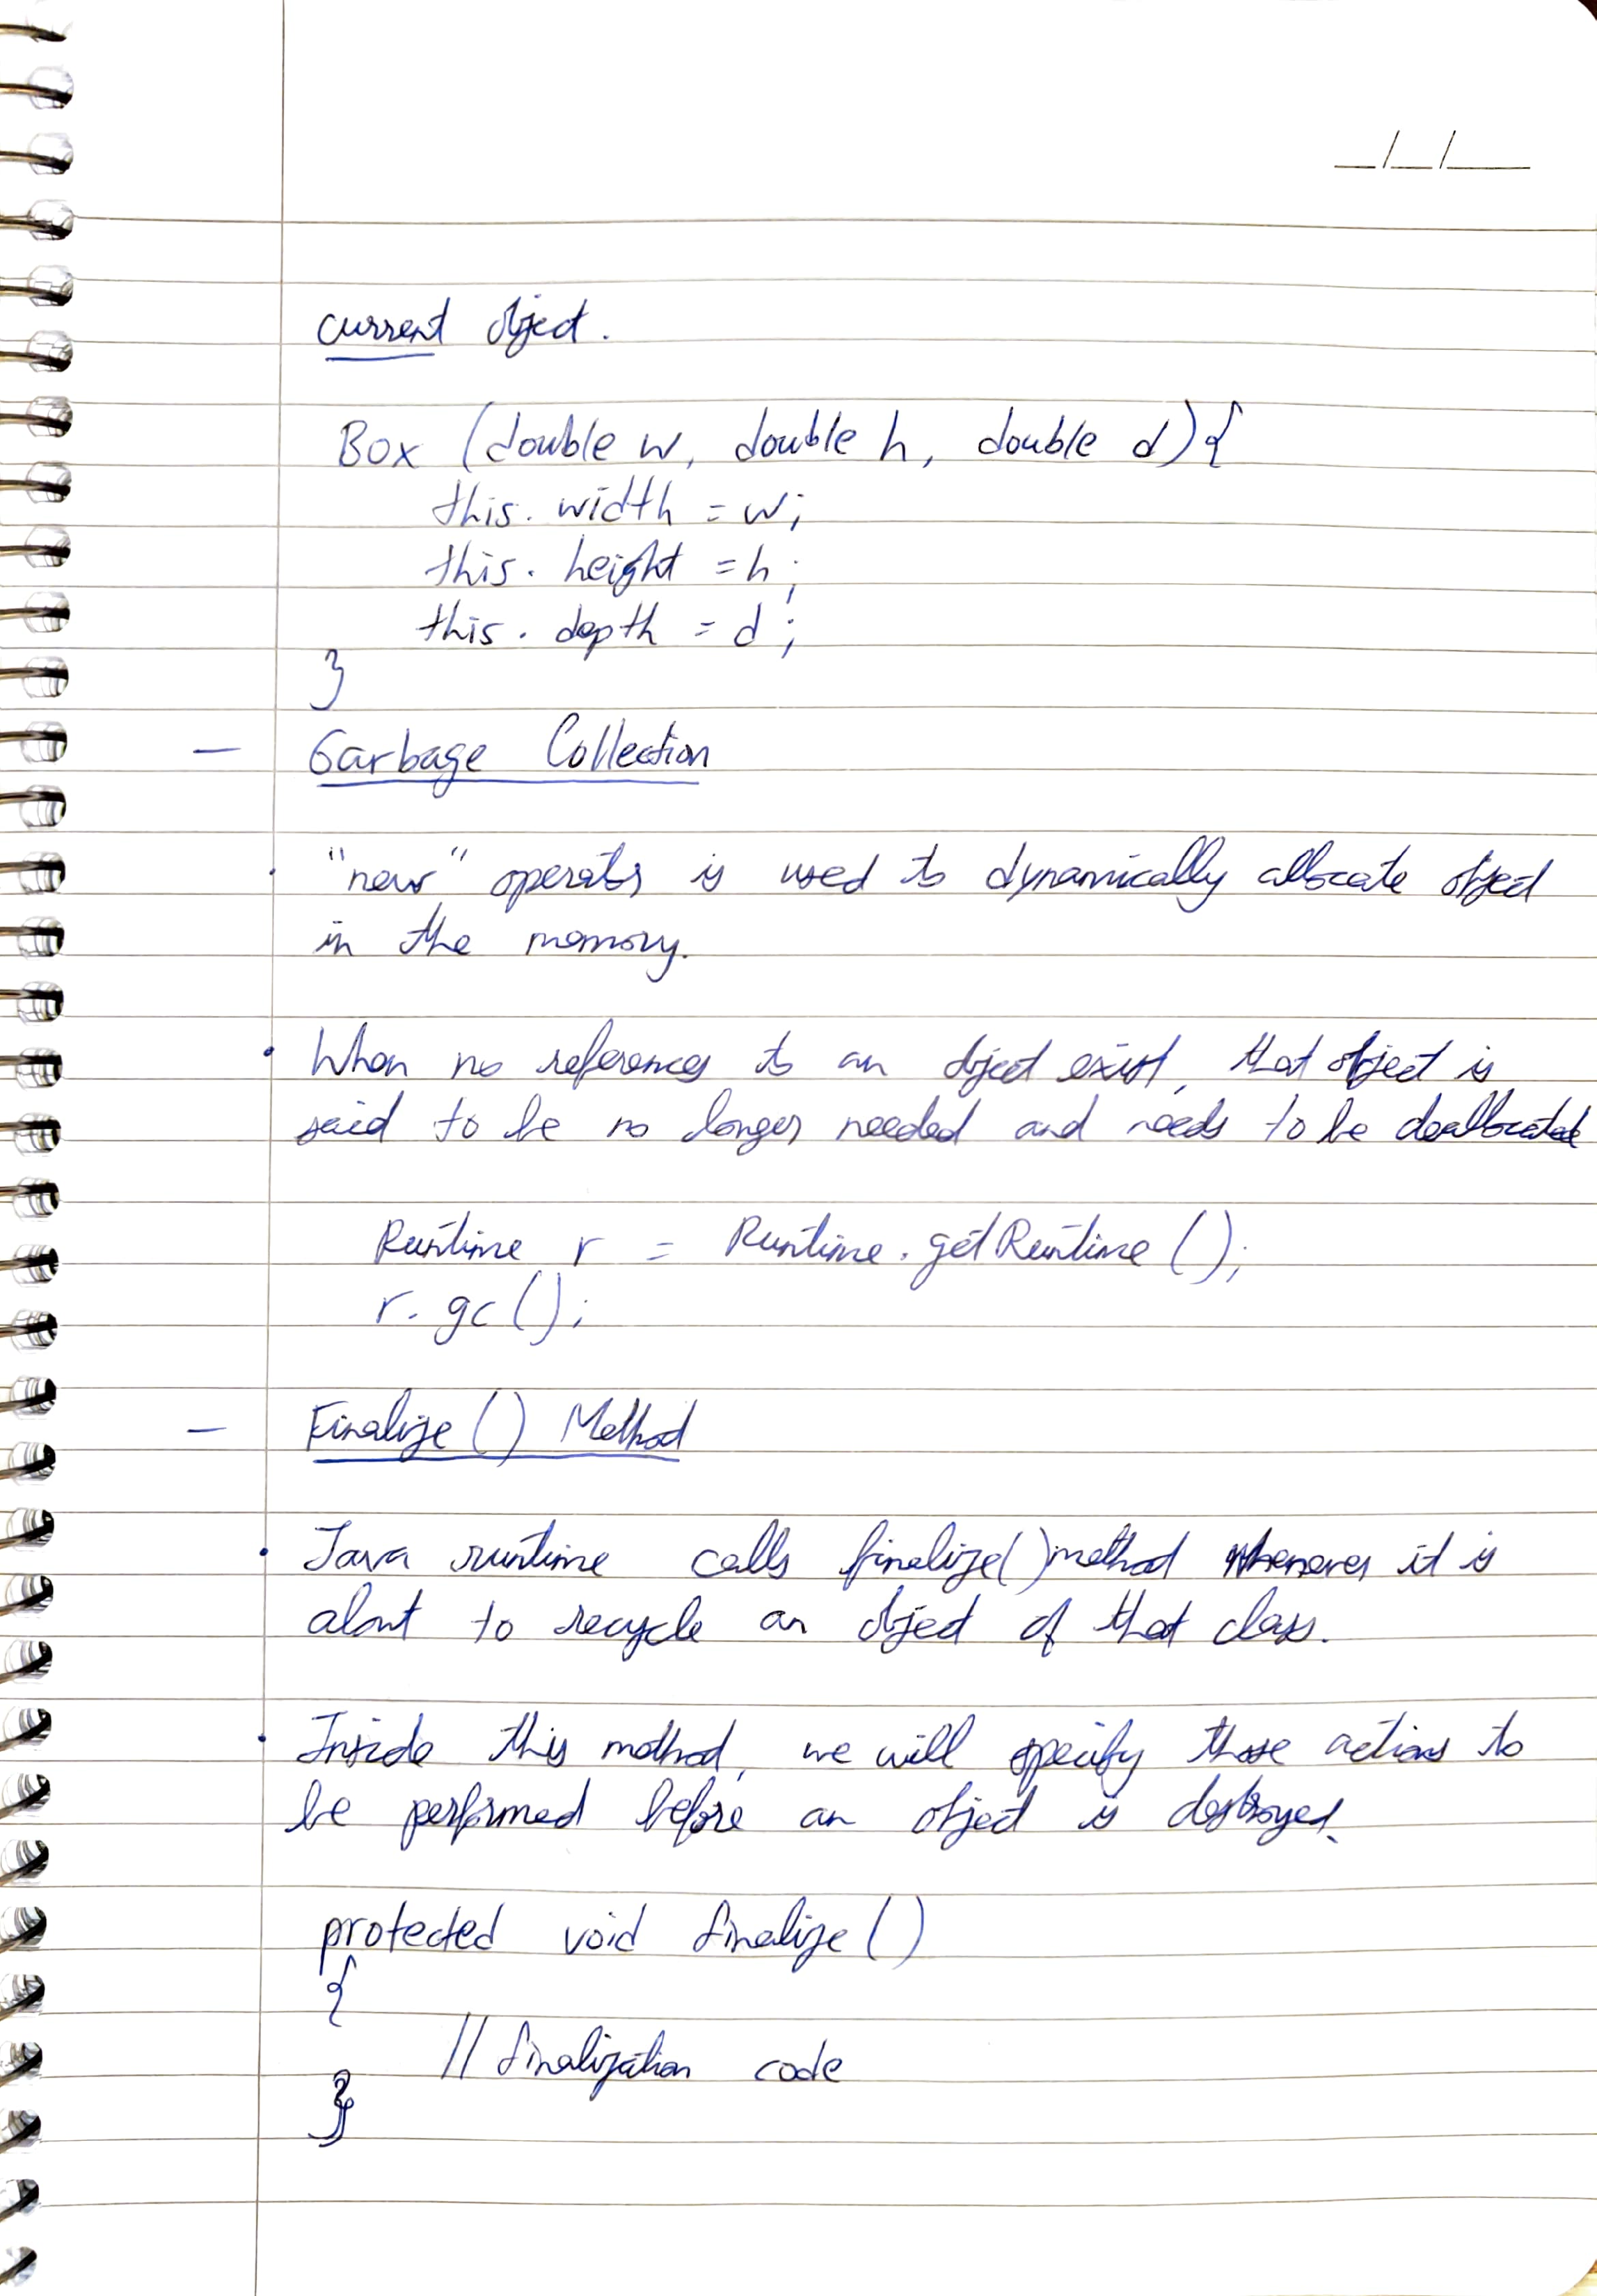 __/__/____
current object.
Box (double w, double h, double d){
this. width = w;
this. height = h;
this. depth = d;
}
— Garbage Collection
• "new" operator is used to dynamically allocate object
in the memory.
• When no references to an object exist, that object is
said to be no longer needed and needs to be deallocated
Runtime r = Runtime.getRuntime();
r. gc();
— Finalize() Method
• Java runtime calls finalize() method whenever it is
about to recycle an object of that class.
• Inside this method, we will specify those actions to
be performed before an object is destroyed.
protected void finalize()
{
// finalization code
}